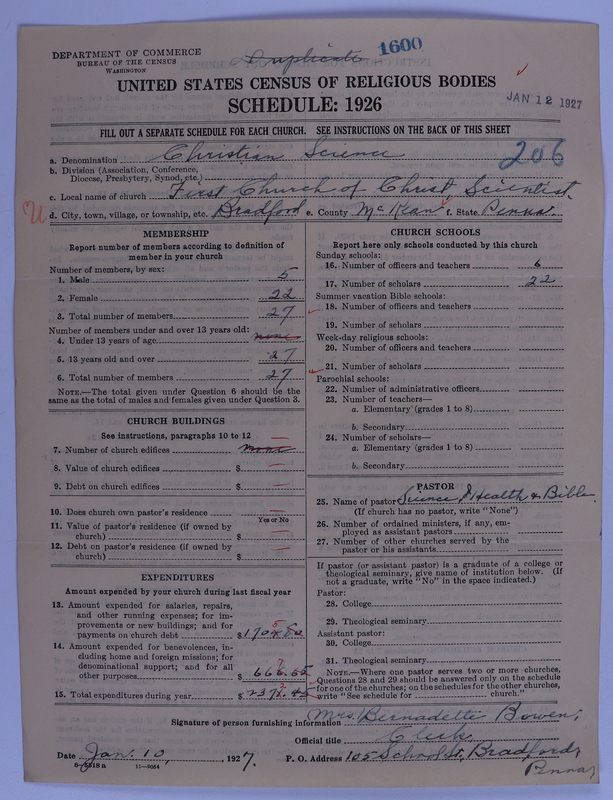 DEPARTMENT OF COMMERCE
BUREAU OF THE CENSUS
WASHINGTON
Duplicate
1600
UNITED STATES CENSUS OF RELIGIOUS BODIES
SCHEDULE: 1926
JAN 12 1927
FILL OUT A SEPARATE SCHEDULE FOR EACH CHURCH. SEE INSTRUCTIONS ON THE BACK OF THIS SHEET
a. Denomination Christian Science
206
b. Division (Association, Conference, Diocese, Presbytery, Synod, etc.)
c. Local name of church First Church of Christ Scientist.
d. City, town, village, or township, etc. Bradford e. County McKean f. State Penna.
MEMBERSHIP
Report number of members according to definition of
member in your church
Number of members, by sex:
1. Male 5
2. Female 22
3. Total number of members 27
Number of members under and over 13 years old:
4. Under 13 years of age none
5. 13 years old and over 27
6. Total number of members 27
NOTE.—The total given under Question 6 should be the
same as the total of males and females given under Question 3.
CHURCH BUILDINGS
See instructions, paragraphs 10 to 12
7. Number of church edifices none
8. Value of church edifices $ —
9. Debt on church edifices $ —
10. Does church own pastor's residence —
Yes or No
11. Value of pastor's residence (if owned by
church) $ —
12. Debt on pastor's residence (if owned by
church) $ —
EXPENDITURES
Amount expended by your church during last fiscal year
13. Amount expended for salaries, repairs,
and other running expenses; for im-
provements or new buildings; and for
payments on church debt $
14. Amount expended for benevolences, in-
cluding home and foreign missions; for
denominational support; and for all
other purposes $
15. Total expenditures during year $
CHURCH SCHOOLS
Report here only schools conducted by this church
Sunday schools:
16. Number of officers and teachers 6
17. Number of scholars 22
Summer vacation Bible schools:
18. Number of officers and teachers
19. Number of scholars
Week-day religious schools:
20. Number of officers and teachers
21. Number of scholars
Parochial schools:
22. Number of administrative officers
23. Number of teachers—
a. Elementary (grades 1 to 8)
b. Secondary
24. Number of scholars—
a. Elementary (grades 1 to 8)
b. Secondary
PASTOR
25. Name of pastor Science & Health & Bible.
(If church has no pastor, write "None")
26. Number of ordained ministers, if any, em-
ployed as assistant pastors
27. Number of other churches served by the
pastor or his assistants
If pastor (or assistant pastor) is a graduate of a college or
theological seminary, give name of institution below. (If
not a graduate, write "No" in the space indicated.)
Pastor:
28. College
29. Theological seminary
Assistant pastor:
30. College
31. Theological seminary
NOTE.—Where one pastor serves two or more churches,
Questions 28 and 29 should be answered only on the schedule
for one of the churches; on the schedules for the other churches,
write "See schedule for church."
Signature of person furnishing information Mrs. Bernadette Bowen,
Official title Clerk
Date Jan. 10, 1927. P. O. Address 105 School St, Bradford,
Penna,
8—5518 a 11—9054